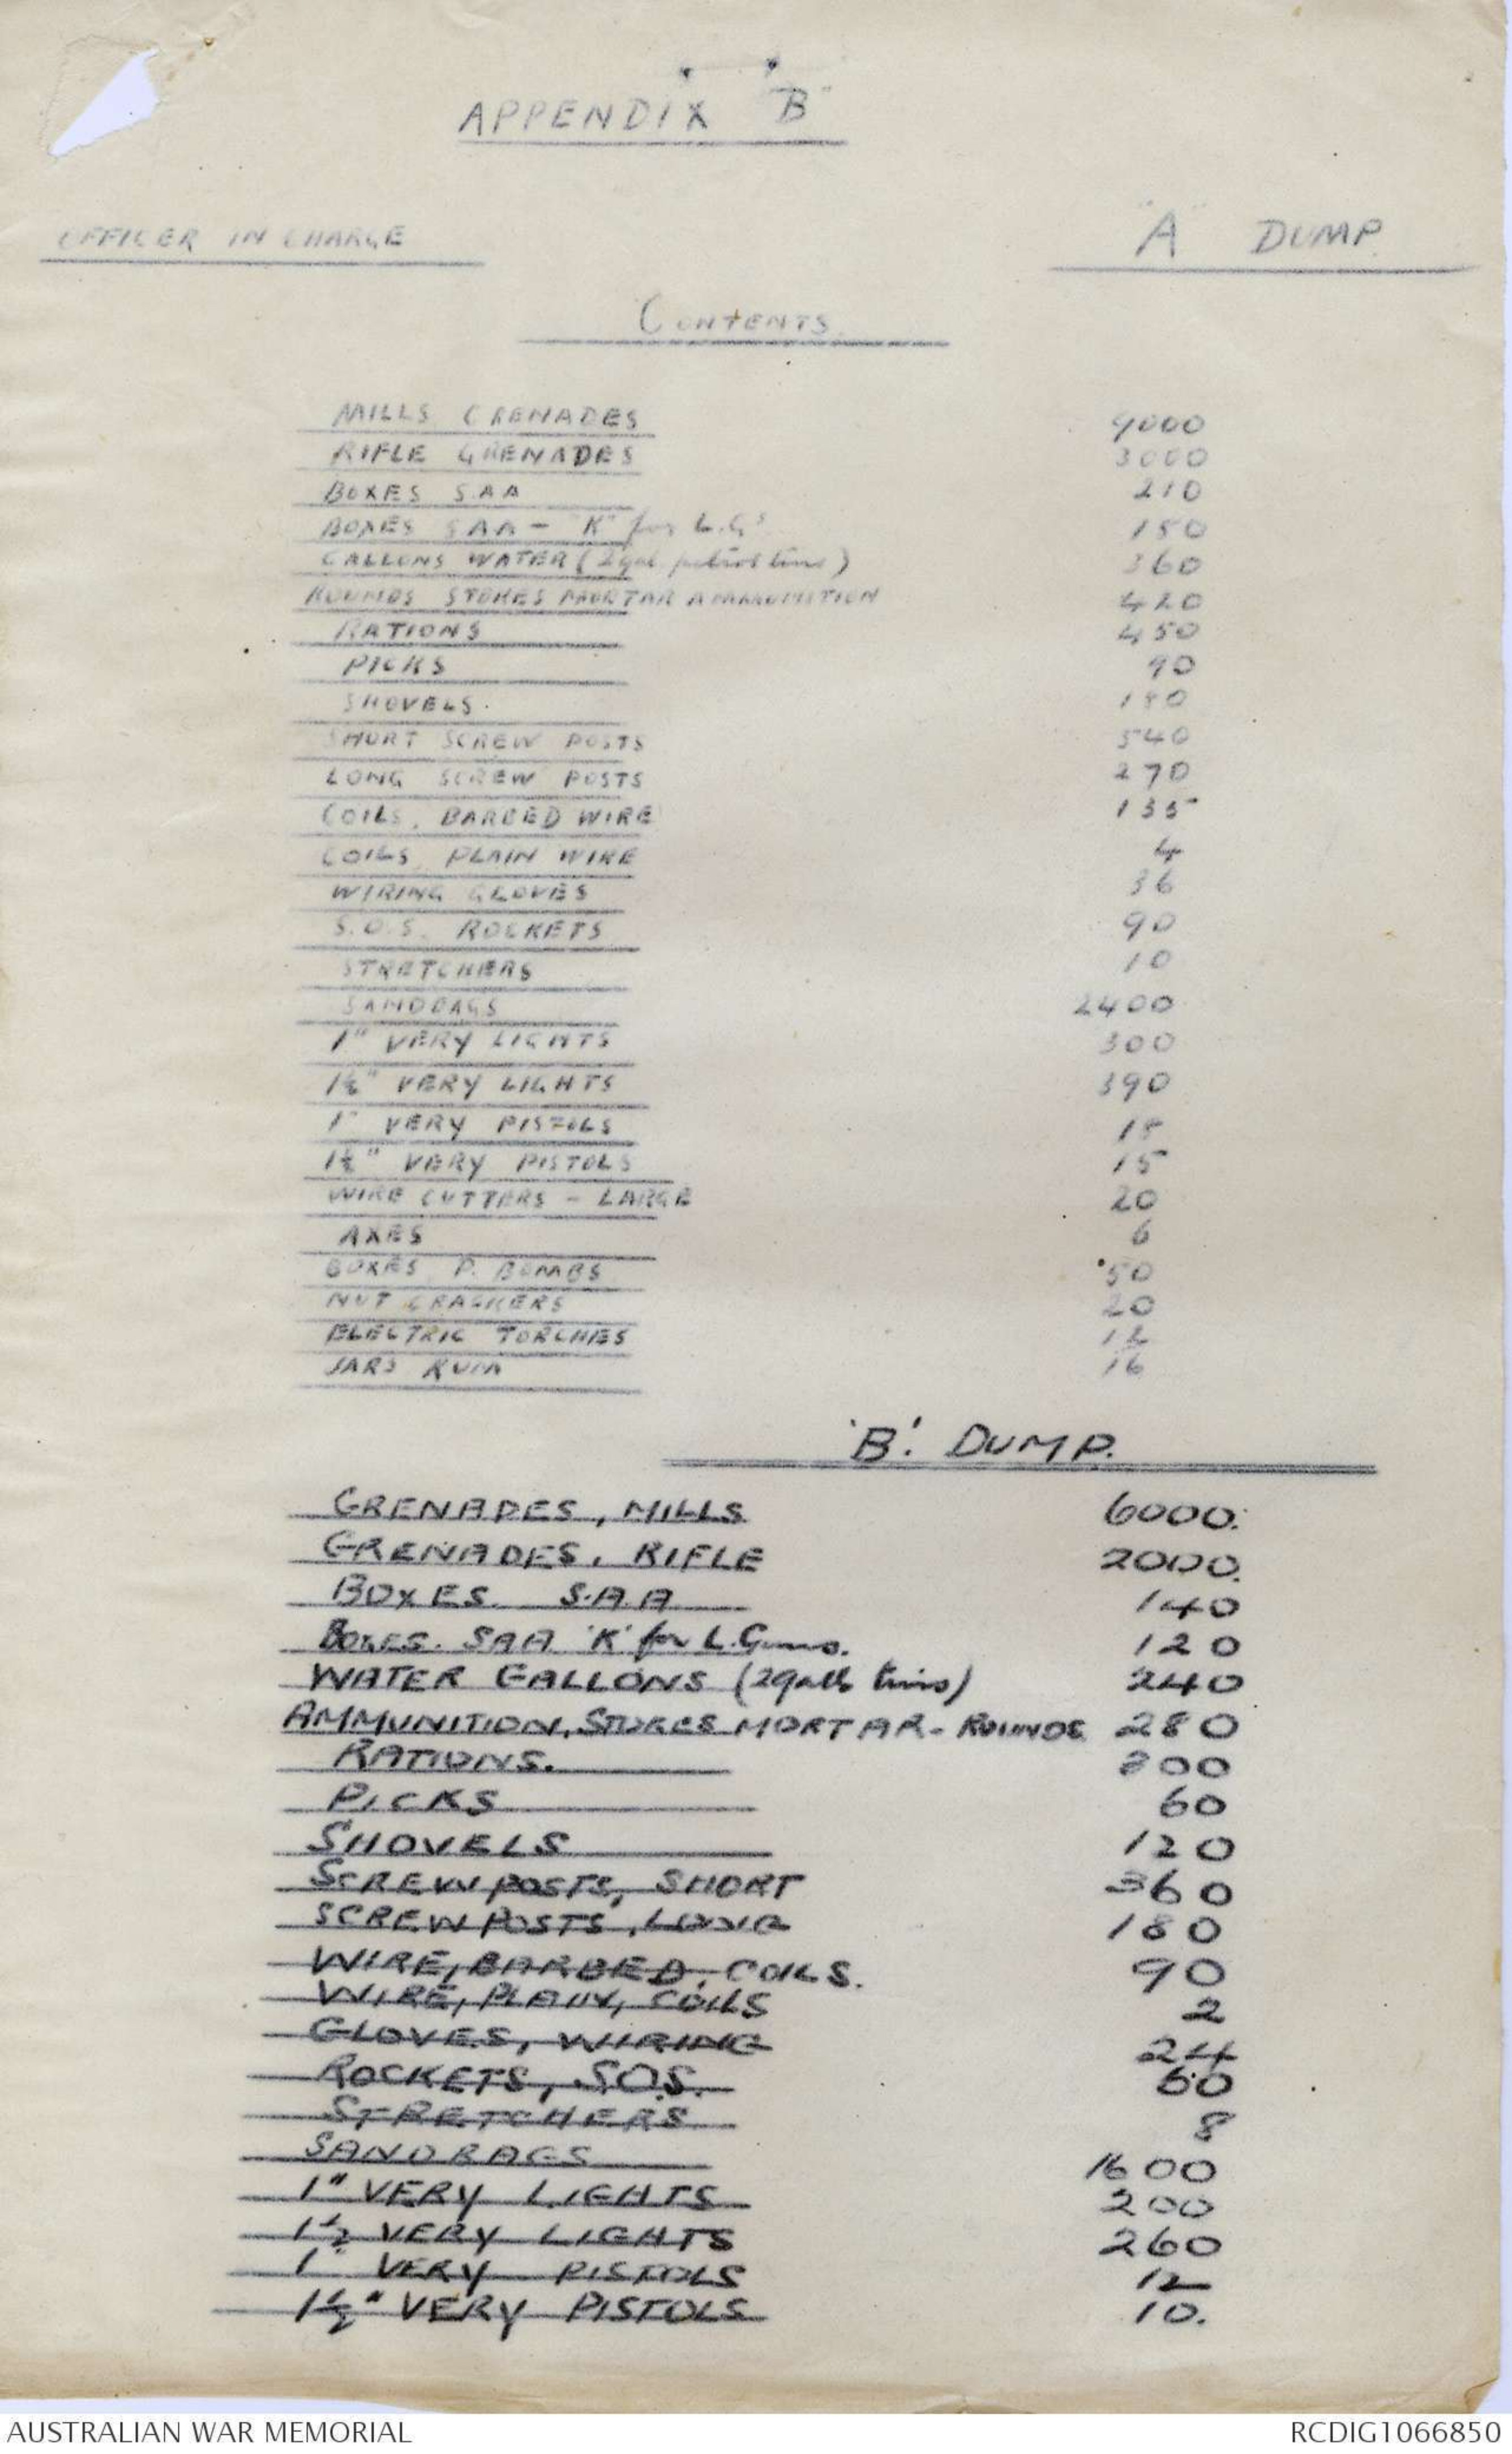 APPENDIX "B"
OFFICER IN CHARGE
"A" DUMP
CONTENTS
MILLS GRENADES 9000
RIFLE GRENADES 3000
BOXES S.A.A 210
BOXES SAA - "K" for L.G's 180
GALLONS WATER (2 gal petrol tins) 360
ROUNDS STOKES MORTAR AMMUNITION 420
RATIONS 450
PICKS 90
SHOVELS. 180
SHORT SCREW POSTS 540
LONG SCREW POSTS 270
COILS, BARBED WIRE 135
COILS, PLAIN WIRE 4
WIRING GLOVES 36
S.O.S. ROCKETS 90
STRETCHERS 10
SANDBAGS 2400
1" VERY LIGHTS 300
1½" VERY LIGHTS 390
1" VERY PISTOLS 18
1½" VERY PISTOLS 15
WIRE CUTTERS - LARGE 20
AXES 6
BOXES P. BOMBS 50
NUT CRACKERS 20
ELECTRIC TORCHES 12
JARS RUM 16
'B'. DUMP.
GRENADES, MILLS 6000.
GRENADES, RIFLE 2000.
BOXES S.A.A 140
BOXES. SAA 'K' for L.Guns. 120
WATER GALLONS (2galls tins) 240
AMMUNITION, STOKES MORTAR - ROUNDS 280
RATIONS. 300
PICKS 60
SHOVELS 120
SCREW POSTS, SHORT 360
SCREW POSTS, LONG 180
WIRE, BARBED, COILS. 90
WIRE, PLAIN, COILS 2
GLOVES, WIRING 24
ROCKETS, S.O.S. 60
STRETCHERS 8
SANDBAGS 1600
1" VERY LIGHTS 200
1½ VERY LIGHTS 260
1" VERY PISTOLS 12
1½" VERY PISTOLS 10.
AUSTRALIAN WAR MEMORIAL
RCDIG1066850